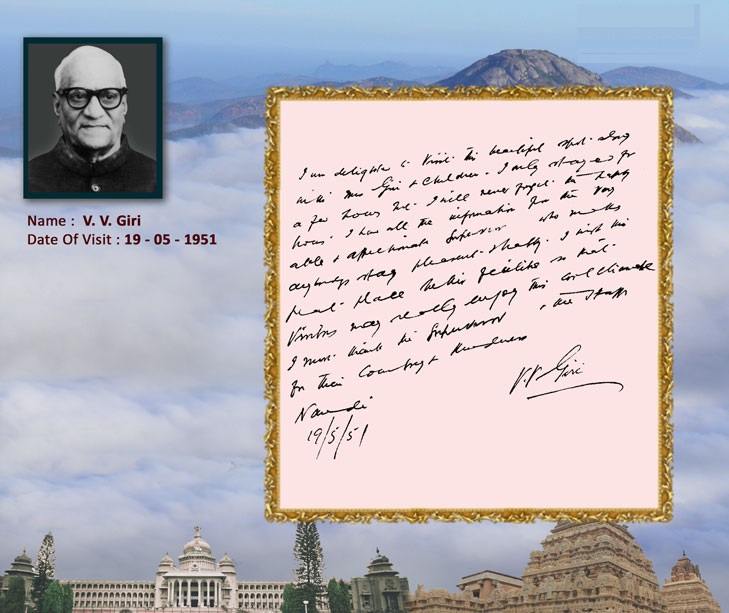 Name : V. V. Giri
Date Of Visit : 19 - 05 - 1951
I am delighted to visit this beautiful spot along
with Mrs Giri & children. I only stayed for
a few hours here. I will never forget the happy
hours. I had all the information from the very
able & affectionate Supervisor who makes
anybody's stay pleasant I wish this
great place better facilities so that
Visitors may really enjoy this cool climate
I must thank the Supervisor & the Staff
for their Courtesy & kindness
V.V Giri
Nandi
19/5/51